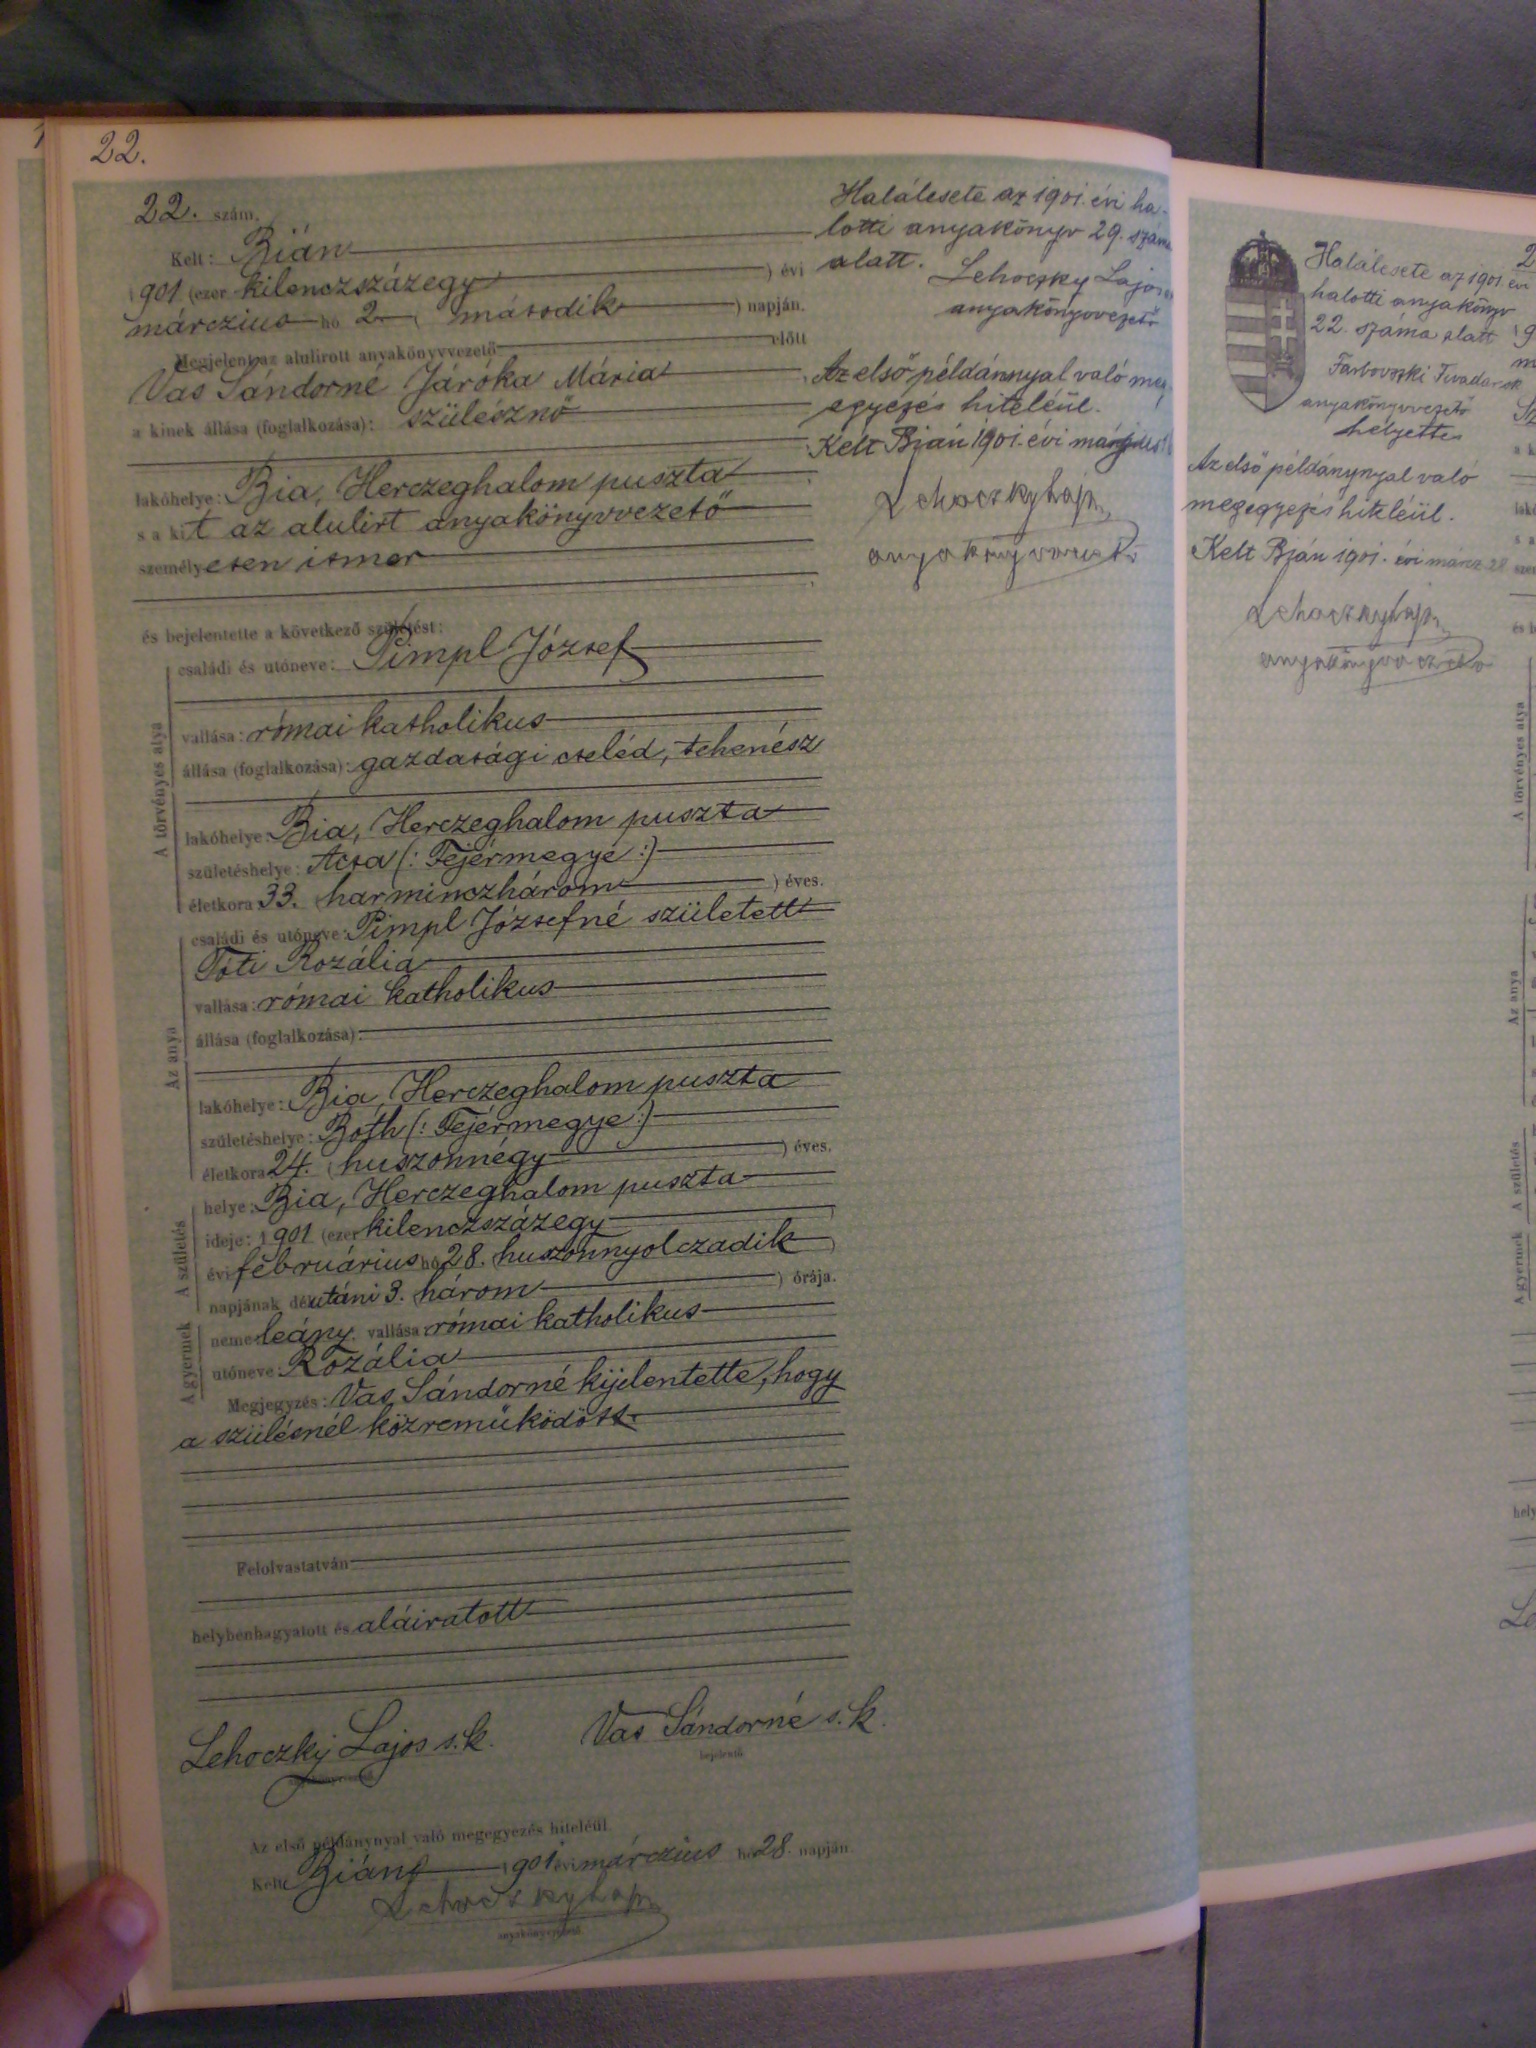 22.
22. szám.
Kelt: Bián
1901 (ezer kilenczszázegy ) évi
márczius hó 2. ( második ) napján.
Megjelent az alulirott anyakönyvvezető előtt
Vas Sándorné Járóka Mária
a kinek állása (foglalkozása): szülésznő
lakóhelye: Bia, Herczeghalom puszta
s a kit az alulirt anyakönyvvezető
személyesen ismer
és bejelentette a következő születést:
A törvényes atya
családi és utóneve: Pimpl József
vallása: római katholikus
állása (foglalkozása): gazdasági cseléd, tehenész
lakóhelye: Bia, Herczeghalom puszta
születéshelye: Acsa (: Fejérmegye :)
életkora 33. (harminczhárom ) éves.
Az anya
családi és utóneve: Pimpl Józsefné született
Tóti Rozália
vallása: római katholikus
állása (foglalkozása):
lakóhelye: Bia, Herczeghalom puszta
születéshelye: Both (: Fejérmegye :)
életkora 24. (huszonnégy ) éves.
A születés
helye: Bia, Herczeghalom puszta
ideje: 1901 (ezer kilenczszázegy )
évi februárius hó 28. (huszonnyolczadik )
napjának délutáni 3. (három ) órája.
A gyermek
neme: leány. vallása: római katholikus
utóneve: Rozália
Megjegyzés: Vas Sándorné kijelentette, hogy
a szülésnél közreműködött.
Felolvastatván
helybenhagyatott és aláiratott
Lehoczky Lajos s.k. Vas Sándorné s.k.
anyakönyvvezető bejelentő
Az első példánynyal való megegyezés hiteléül.
Kelt Bián, 1901 évi márczius hó 28. napján.
Lehoczky Lajos
anyakönyvvezető
Halálesete az 1901. évi ha-
lotti anyakönyv 29. száma
alatt.
Lehoczky Lajos
anyakönyvvezető
Az első példánnyal való meg-
egyezés hiteléül.
Kelt Bján 1901. évi
Lehoczky Lajos
anyakönyvvezető
Halálesete az 1901 évi
halotti anyakönyv
22. száma alatt
Tivadar sk
anyakönyvvezető
helyettes
Az első példánynyal való
megegyezés hiteléül.
Kelt Bján 1901. évi márcz 28
Lehoczky Lajos
anyakönyvvezető
A törvényes atya
Az anya
A születés
A gyermek